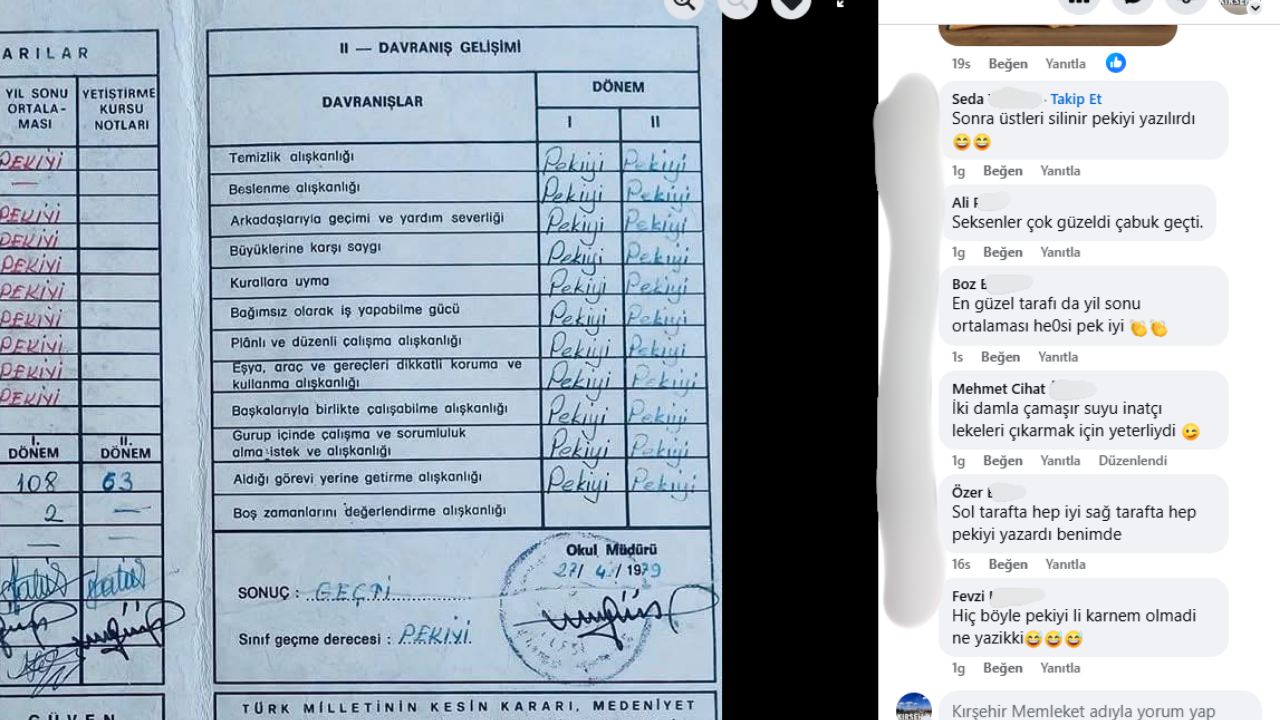 ARILAR
YIL SONU
ORTALA-
MASI
YETİŞTİRME
KURSU
NOTLARI
PEKİYİ
—
PEKİYİ
PEKİYİ
PEKİYİ
PEKİYİ
PEKİYİ
PEKİYİ
PEKİYİ
PEKİYİ
I.
DÖNEM
II.
DÖNEM
108 63
2 —
— —
GÜVEN
II — DAVRANIŞ GELİŞİMİ
DAVRANIŞLAR
DÖNEM
I II
Temizlik alışkanlığı Pekiyi Pekiyi
Beslenme alışkanlığı Pekiyi Pekiyi
Arkadaşlarıyla geçimi ve yardım severliği Pekiyi Pekiyi
Büyüklerine karşı saygı Pekiyi Pekiyi
Kurallara uyma Pekiyi Pekiyi
Bağımsız olarak iş yapabilme gücü Pekiyi Pekiyi
Plânlı ve düzenli çalışma alışkanlığı Pekiyi Pekiyi
Eşya, araç ve gereçleri dikkatli koruma ve
kullanma alışkanlığı Pekiyi Pekiyi
Başkalarıyla birlikte çalışabilme alışkanlığı Pekiyi Pekiyi
Gurup içinde çalışma ve sorumluluk
alma istek ve alışkanlığı Pekiyi Pekiyi
Aldığı görevi yerine getirme alışkanlığı Pekiyi Pekiyi
Boş zamanlarını değerlendirme alışkanlığı
Okul Müdürü
27/ 4 / 1979
SONUÇ : GEÇTİ
Sınıf geçme derecesi : PEKİYİ
TÜRK MİLLETİNİN KESİN KARARI, MEDENİYET
19s Beğen Yanıtla
Seda · Takip Et
Sonra üstleri silinir pekiyi yazılırdı
😄😄
1g Beğen Yanıtla
Ali
Seksenler çok güzeldi çabuk geçti.
1g Beğen Yanıtla
Boz
En güzel tarafı da yil sonu
ortalaması he0si pek iyi 👏👏
1s Beğen Yanıtla
Mehmet Cihat
İki damla çamaşır suyu inatçı
lekeleri çıkarmak için yeterliydi 😉
1g Beğen Yanıtla Düzenlendi
Özer
Sol tarafta hep iyi sağ tarafta hep
pekiyi yazardı benimde
16s Beğen Yanıtla
Fevzi
Hiç böyle pekiyi li karnem olmadi
ne yazikki😅😅😅
1g Beğen Yanıtla
Kırşehir Memleket adıyla yorum yap